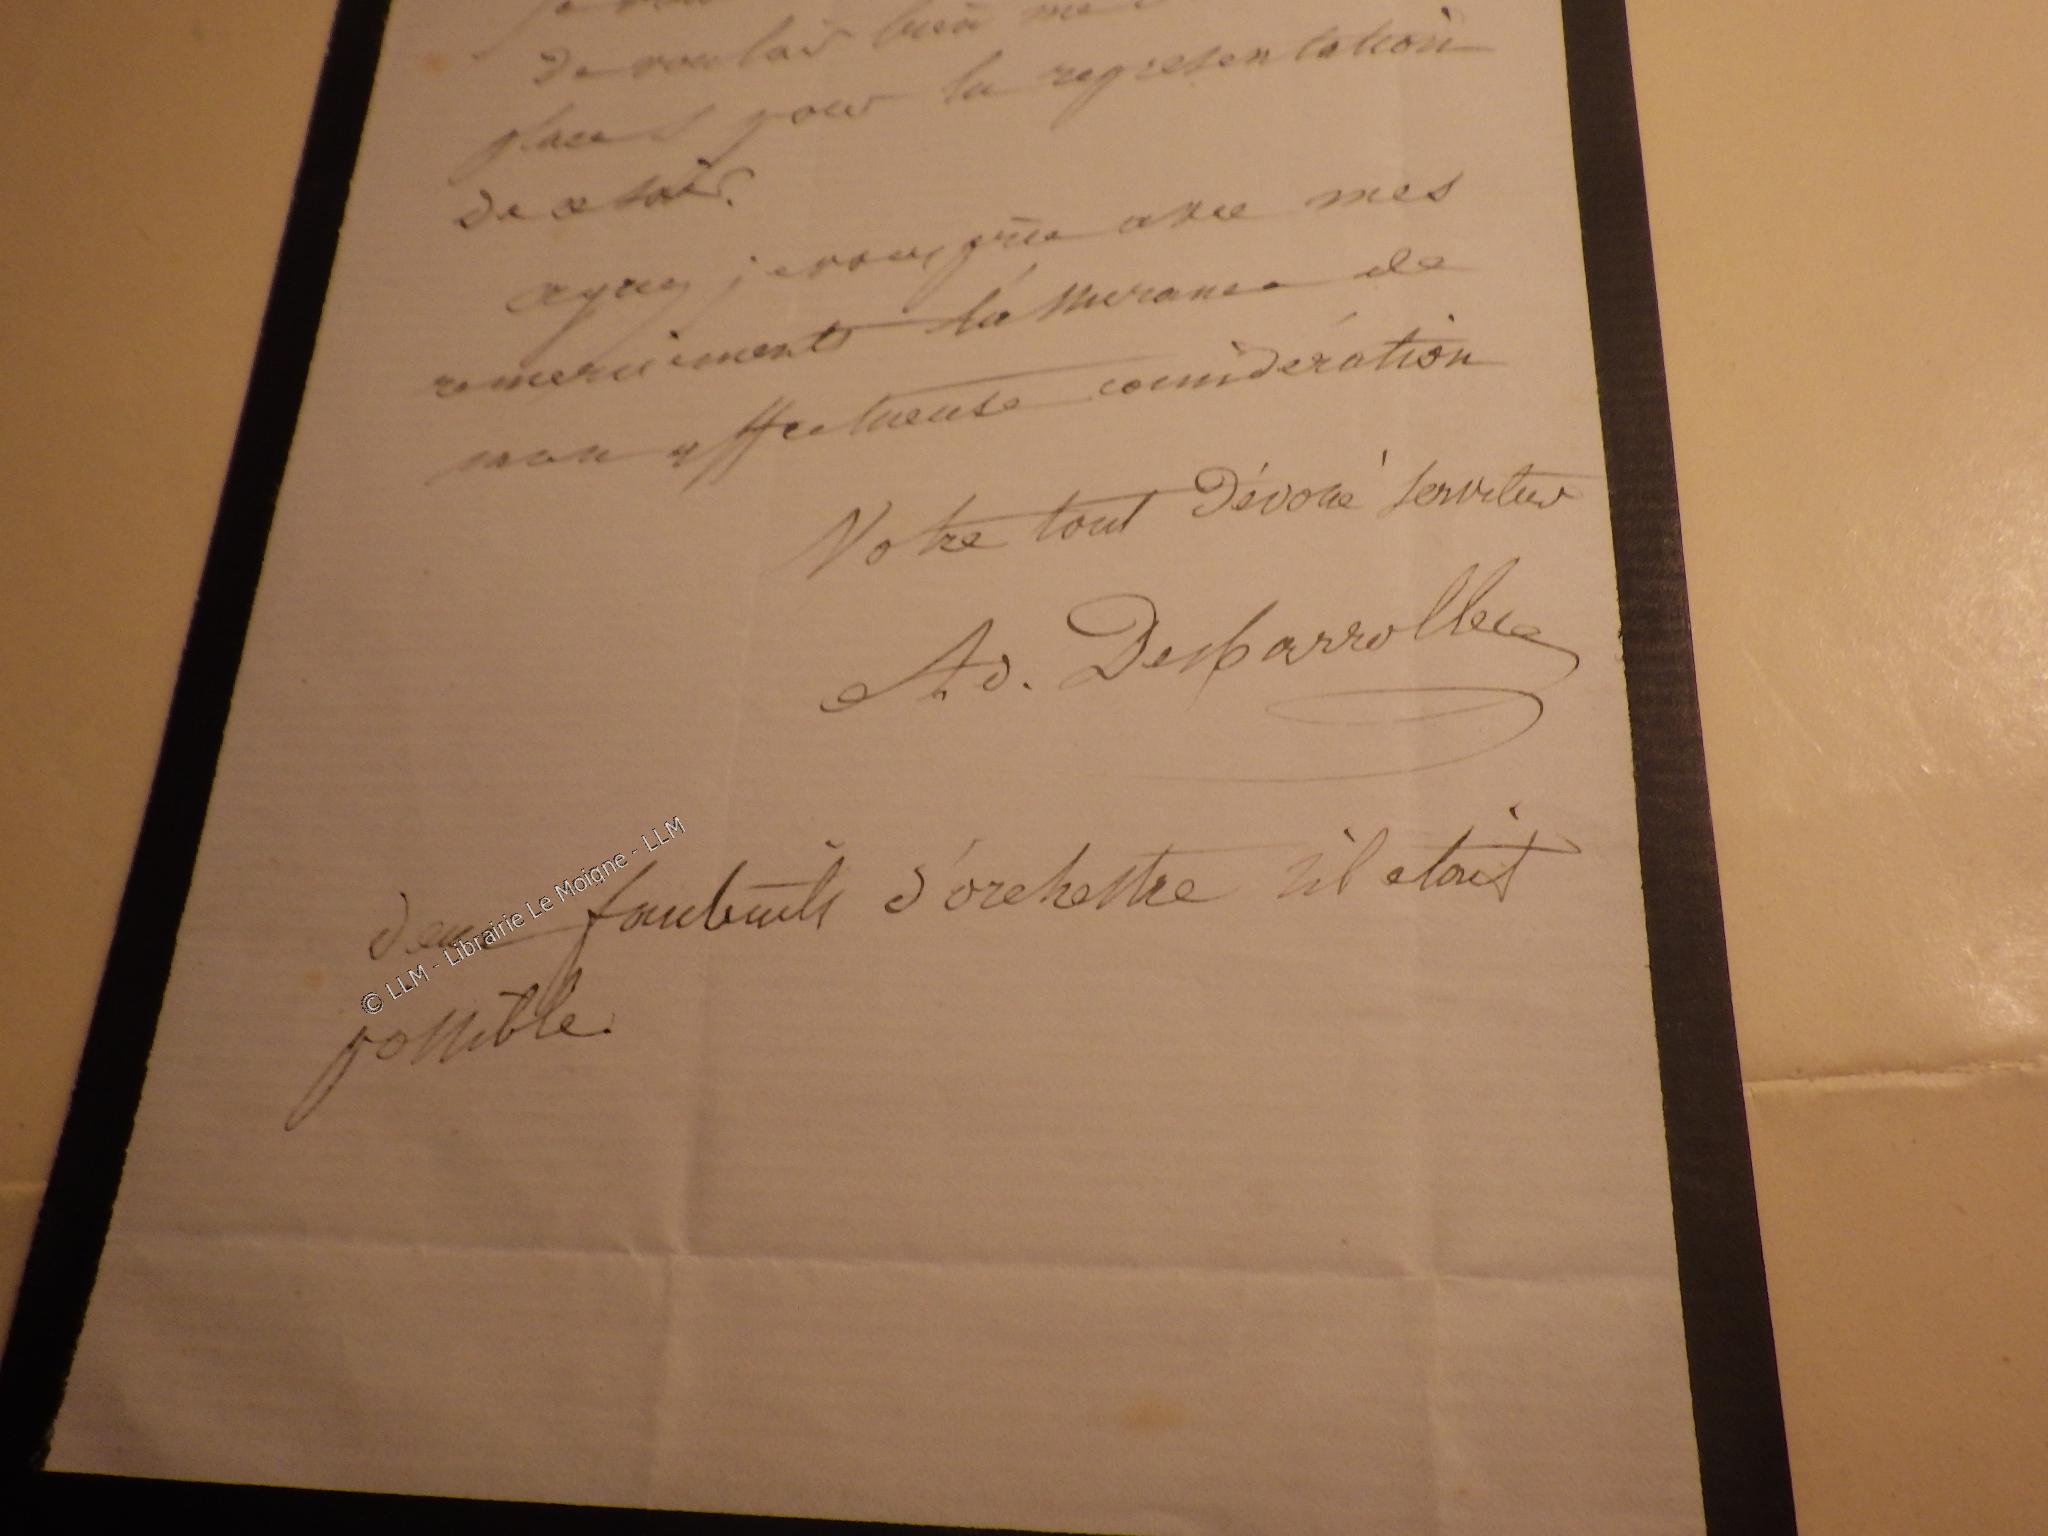 de vouloir bien me
places pour la représentation
de ce soir.
agréez je vous prie avec mes
remerciements l'assurance de
mon affectueuse considération
Votre tout dévoué serviteur
Ad. Desbarrolles
deux fauteuils d'orchestre s'il etait
possible.
© LLM - Librairie Le Moigne - LLM